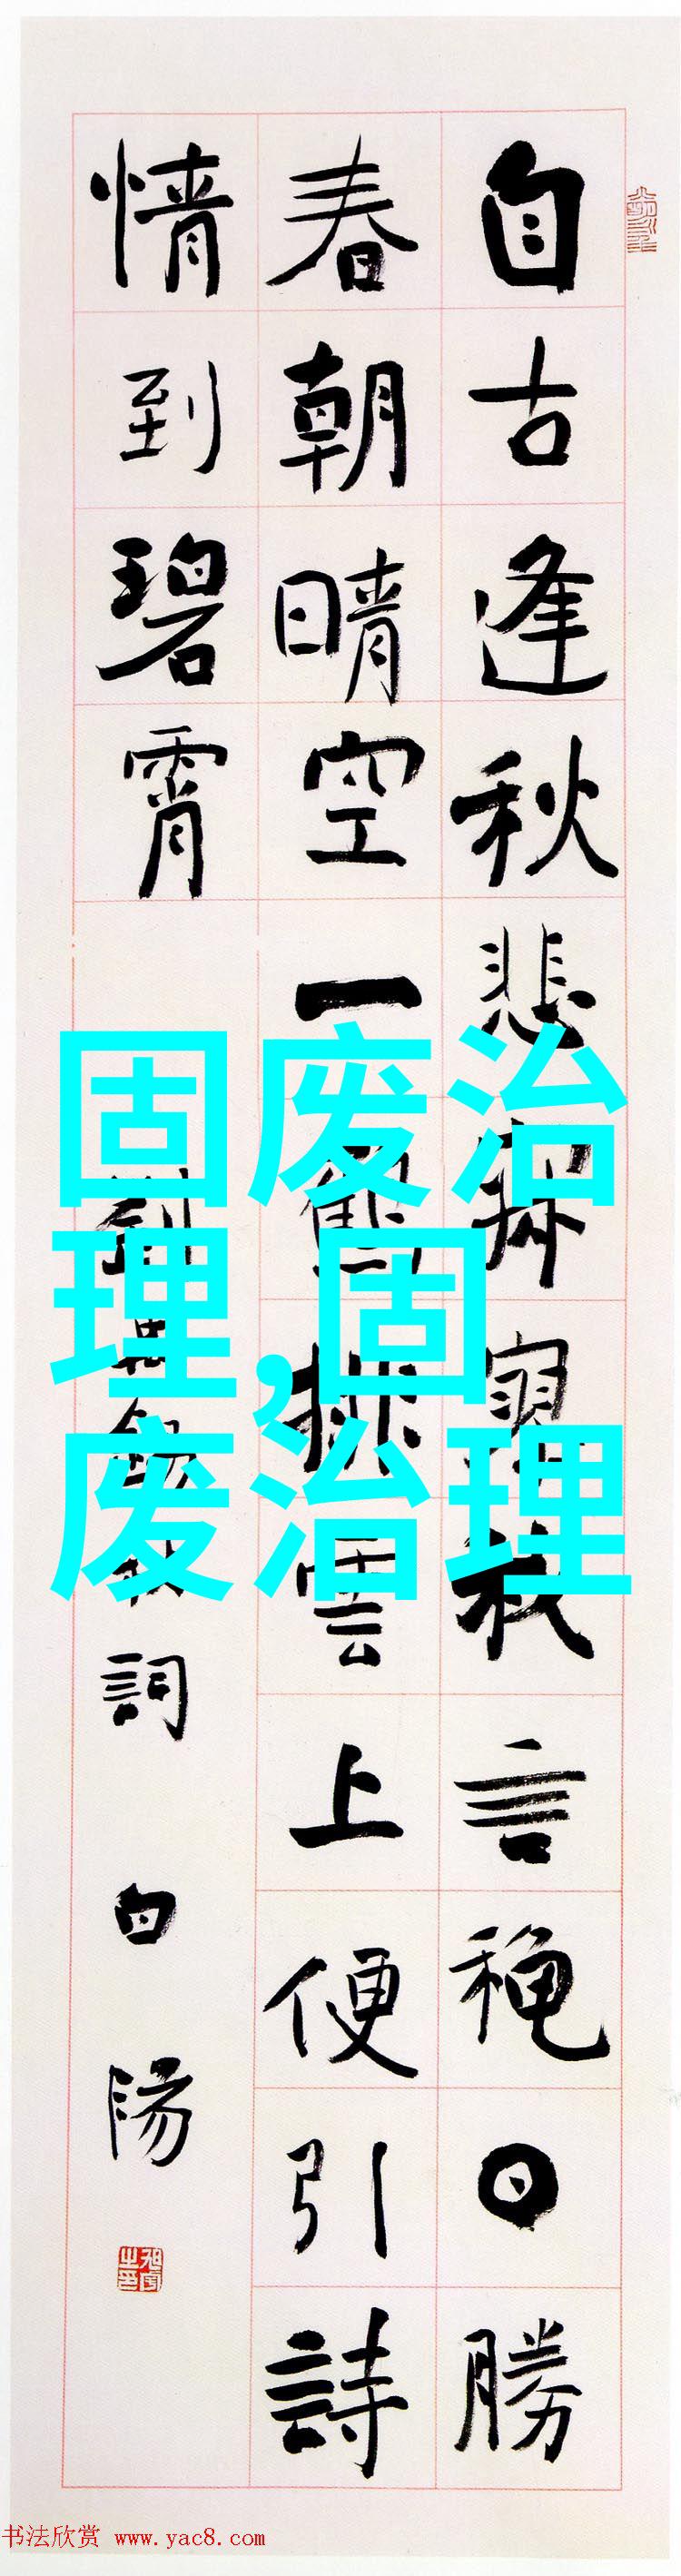 自古逢秋悲寂寥我言穐日勝
春朝晴空一鶴排雲上便引詩
情到碧霄
劉禹錫秋詞 白陽
固废治
理,固
废治理
书法欣赏 www.yac8.com